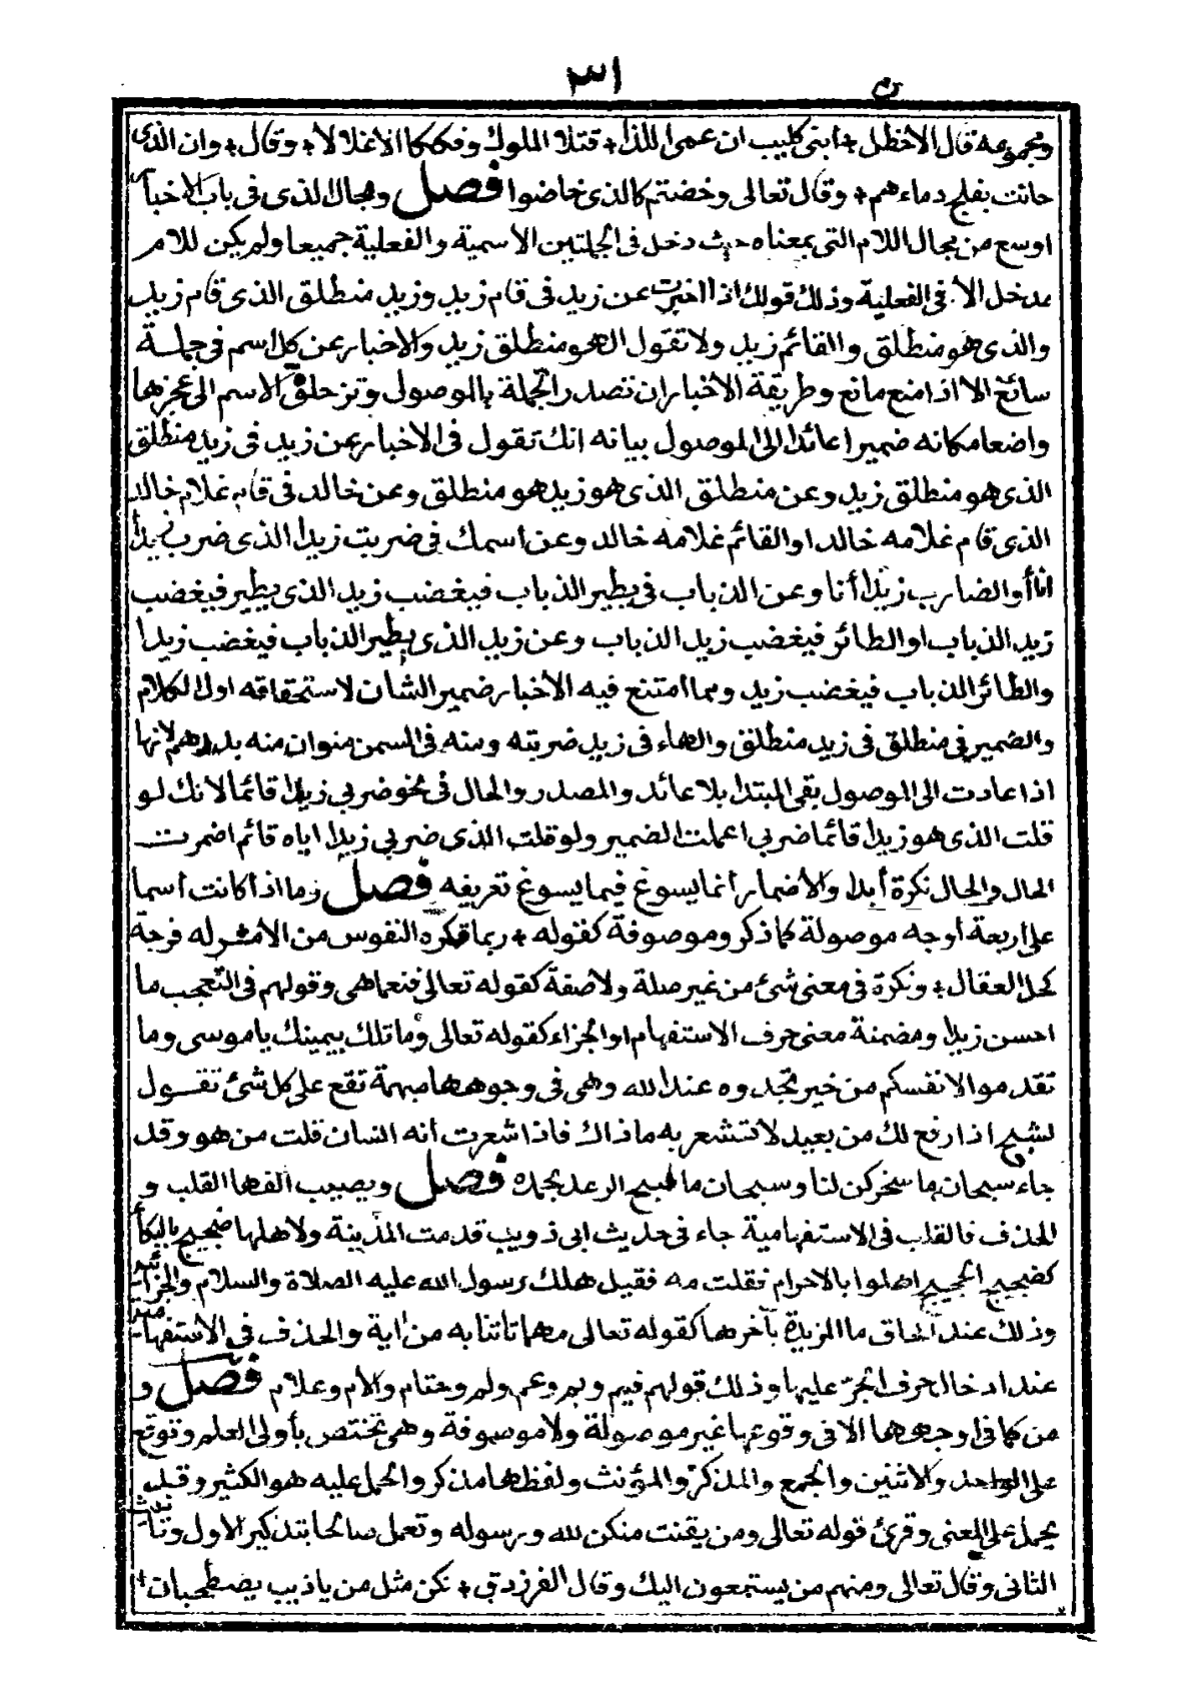 ٣١
ومجموعه قال الأخطل + ابنى كليب ان عمى اللذا + قتلا الملوك وفككا الاغلالا + وقال + وان الذى
حانت بفلج دماءهم + وقال تعالى وخضتم كالذى خاضوا فصل ومجال الذى فى باب الاخبار
اوسع من مجال اللام التى بمعناه حيث دخل فى الجملتين الاسمية والفعلية جميعا ولم يكن للام
مدخل الا فى الفعلية وذلك قولك اذا اخبرت عن زيد فى قام زيد وزيد منطلق الذى قام زيد
والذى هو منطلق والقائم زيد ولا تقول الهو منطلق زيد والاخبار عن كل اسم فى جملة
سائغ الا اذا منع مانع وطريقة الاخبار ان تصدر الجملة بالموصول وتزحلق الاسم الى عجزها
واضعا مكانه ضميرا عائدا الى الموصول بيانه انك تقول فى الاخبار عن زيد فى زيد منطلق
الذى هو منطلق زيد وعن منطلق الذى هو زيد هو منطلق وعن خالد فى قام غلام خالد
الذى قام غلامه خالد او القائم غلامه خالد وعن اسمك فى ضربت زيدا الذى ضرب زيدا
انا أو الضارب زيدا أنا وعن الذباب فى يطير الذباب فيغضب زيد الذى يطير فيغضب
زيد الذباب او الطائر فيغضب زيد الذباب وعن زيد الذى يطير الذباب فيغضب زيدا
والطائر الذباب فيغضب زيد ومما امتنع فيه الأخبار ضمير الشان لاستحقاقه اول الكلام
والضمير فى منطلق فى زيد منطلق والهاء فى زيد ضربته ومنه فى السمن منوان منه بدرهم لانها
اذا عادت الى الموصول بقى المبتدا بلا عائد والمصدر والحال فى نحو ضربى زيدا قائما لانك لو
قلت الذى هو زيدا قائما ضربى اعملت الضمير ولو قلت الذى ضربى زيدا اياه قائم اضمرت
الحال والحال نكرة أبدا والأضمار انما يسوغ فيما يسوغ تعريفه فصل وما اذا كانت اسما
على اربعة أوجه موصولة كما ذكر وموصوفة كقوله + ربما تكره النفوس من الأمر له فرجة
كحل العقال + ونكرة فى معنى شئ من غير صلة ولا صفة كقوله تعالى فنعما هى وقولهم فى التعجب ما
احسن زيدا ومضمنة معنى حرف الاستفهام او الجزاء كقوله تعالى وما تلك بيمينك يا موسى وما
تقدموا لانفسكم من خير تجدوه عند الله وهى فى وجوهها مبهمة تقع على كل شئ تقول
لشبح اذا رفع لك من بعيد لا تشعر به ما ذاك فاذا شعرت أنه انسان قلت من هو وقد
جاء سبحان ما سخركن لنا وسبحان ما سبح الرعد بحمده فصل ويصيب الفها القلب و
الحذف فالقلب فى الاستفهامية جاء فى حديث ابى ذويب قدمت المدينة ولاهلها ضجيج بالبكاء
كضجيج الحجيج اهلوا بالاحرام فقلت مه فقيل هلك رسول الله عليه الصلاة والسلام والجزائية
وذلك عند الحاق ما المزيدة بآخرها كقوله تعالى مهما تاتنا به من اية والحذف فى الاستفهامية
عند ادخال حرف الجر عليها وذلك قولهم فيم وبم وعم ولم وحتام والام وعلام فصل و
من كما فى اوجهها الا فى وقوعها غير موصولة ولا موصوفة وهى تختص بأولى العلم وتوقع
على الواحد والاثنين والجمع والمذكر والمؤنث ولفظها مذكر والحمل عليه هو الكثير وقد
يحمل على المعنى وقرئ قوله تعالى ومن يقنت منكن لله ورسوله وتعمل صالحا بتذكير الاول وتانيث
الثانى وقال تعالى ومنهم من يستمعون اليك وقال الفرزدق + نكن مثل من ياذيب يصطحبان +